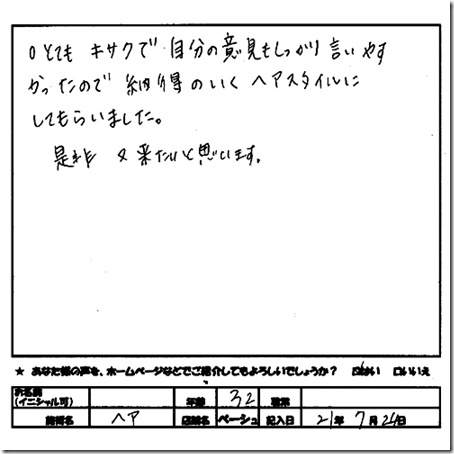 ○とても キサクで 自分の意見もしっかり言いやす
かったので 納得のいく ヘアスタイルに
してもらいました。
是非 又来たいと思います。
★ あなた様の声を、ホームページなどでご紹介してもよろしいでしょうか? □はい □いいえ
お名前 (イニシャル可) 年齢 32 職業
施術名 ヘア 店舗名 ベーシュ 記入日 21年 7月26日